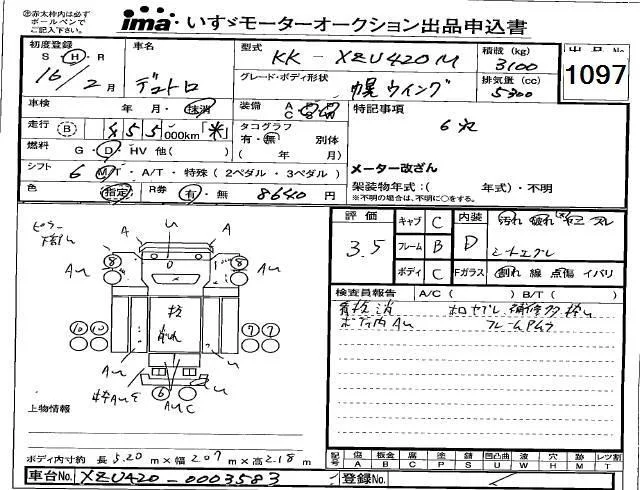 ㊟赤太枠内は必ず
ボールペンで
ご記入ください。
ima いすゞモーターオークション出品申込書
出品No.
1097
初度登録
S・H・R
16/2月
車名
デュトロ
型式
KK-XZU420M
積載(kg)
3100
グレード・ボディ形状
幌ウイング
排気量(cc)
5300
車検
年 月・抹消
装備 A P P
C S W
特記事項
走行 B 855,000km「米」
タコグラフ
有・無 別体
( 年 月)
燃料 G・D・HV 他( )
メーター改ざん
シフト 6 MT・A/T・特殊(2ペダル・3ペダル)
架装物年式:( 年式)・不明
※不明の場合は、不明に○をする。
色 指定 R券 有・無 8640円
評価
3.5
キャブ C
フレーム B
ボディ C
内装 D
汚れ 破れ キズ スレ
シートエグレ
Fガラス 割れ 線 点傷 イバリ
検査員報告 A/C( ) B/T( )
ボディ内AU
ピラー
U
A
A
AU
AU
8
8
10 10
7 7
6
AU
U
AUC
上物情報
ボディ内寸約 長 5.20 m×幅 2.07 m×高 2.18 m
記号 傷 A 板金 B 腐 C 塗 P 錆 S 凹凸曲 U 波 W 穴 H 跡 M レンズ割 T
車台No. XZU420-0003583
登録No.